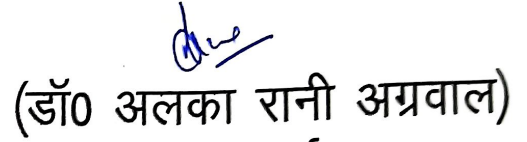 (डॉ0 अलका रानी अग्रवाल)